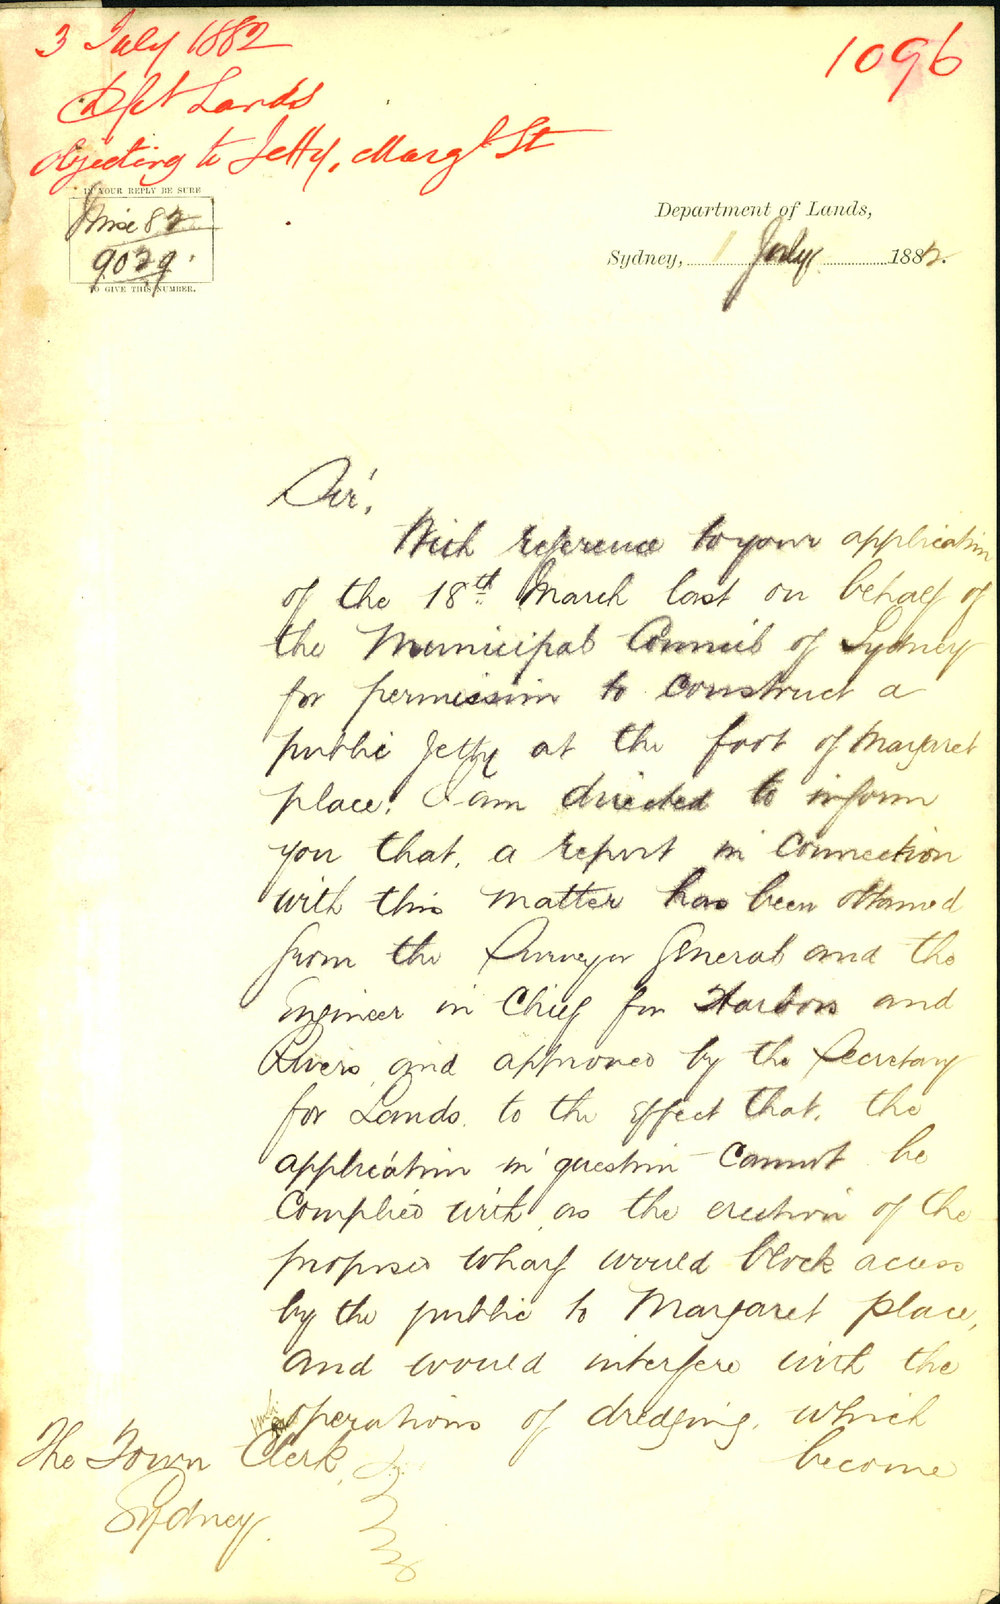 3 July 1882
1096
Dpt Lands
objecting to Jetty, Margt St
IN YOUR REPLY BE SURE
Misc 82
9029
TO GIVE THIS NUMBER.
Department of Lands,
Sydney, 1 July 1882.
Sir,
With reference to your application
of the 18th March last on behalf of
the Municipal Council of Sydney
for permission to construct a
public Jetty at the foot of Margaret
place. I am directed to inform
you that, a report in connection
with this matter has been obtained
from the Surveyor General and the
Engineer in Chief for Harbors and
Rivers, and approved by the Secretary
for Lands, to the effect that, the
application in question cannot be
complied with, as the erection of the
proposed wharf would block access
by the public to Margaret place,
and would interfere with the
operations of dredging, which
become
The Town Clerk,
Sydney.